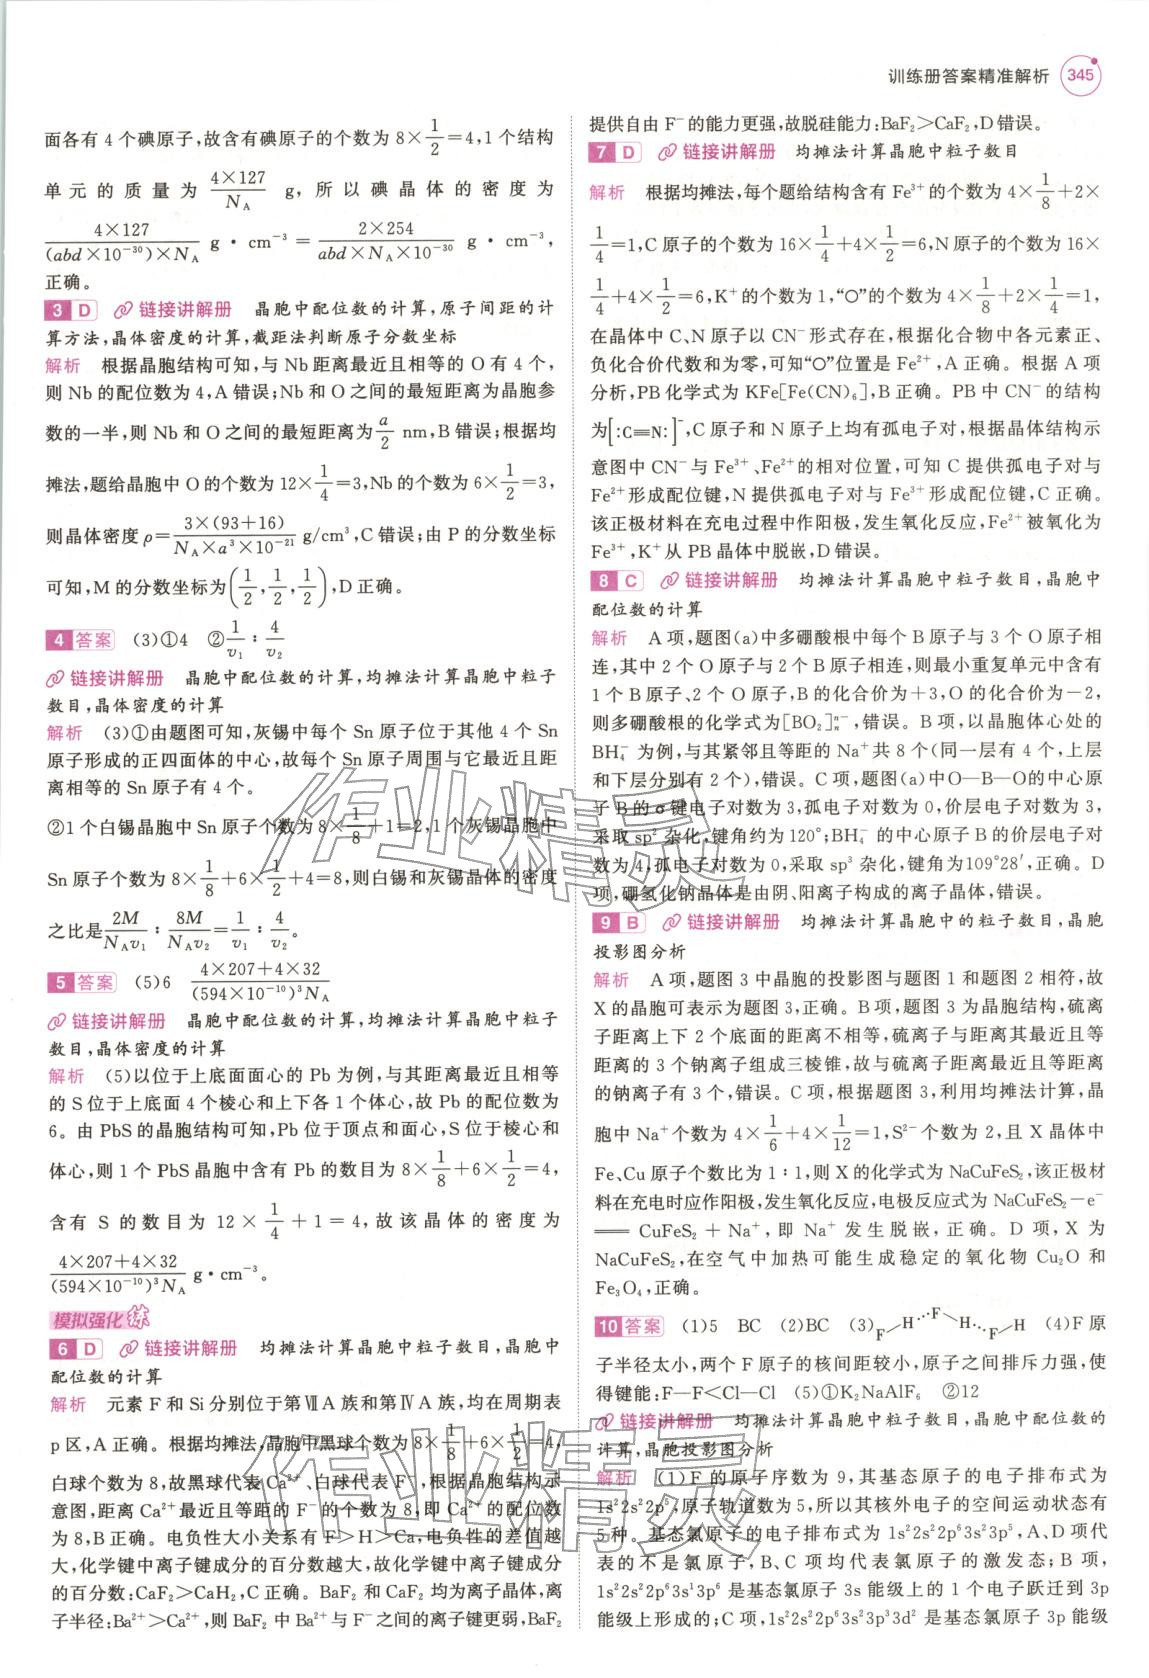 训练册答案精准解析 345
面各有 4 个碘原子,故含有碘原子的个数为 8×1/2=4,1 个结构
单元的质量为 4×127/N_A g,所以碘晶体的密度为
4×127/((abd×10⁻³⁰)×N_A) g·cm⁻³=2×254/(abd×N_A×10⁻³⁰) g·cm⁻³,
正确。
3 D 链接讲解册 晶胞中配位数的计算,原子间距的计
算方法,晶体密度的计算,截距法判断原子分数坐标
解析 根据晶胞结构可知,与 Nb 距离最近且相等的 O 有 4 个,
则 Nb 的配位数为 4,A 错误;Nb 和 O 之间的最短距离为晶胞参
数的一半,则 Nb 和 O 之间的最短距离为a/2 nm,B 错误;根据均
摊法,题给晶胞中 O 的个数为 12×1/4=3,Nb 的个数为 6×1/2=3,
则晶体密度 ρ=3×(93+16)/(N_A×a³×10⁻²¹) g/cm³,C 错误;由 P 的分数坐标
可知,M 的分数坐标为(1/2,1/2,1/2),D 正确。
4 答案 (3)①4 ②1/v₁:4/v₂
链接讲解册 晶胞中配位数的计算,均摊法计算晶胞中粒子
数目,晶体密度的计算
解析 (3)①由题图可知,灰锡中每个 Sn 原子位于其他 4 个 Sn
原子形成的正四面体的中心,故每个 Sn 原子周围与它最近且距
离相等的 Sn 原子有 4 个。
②1 个白锡晶胞中 Sn 原子个数为 8×1/8+1=2,1 个灰锡晶胞中
Sn 原子个数为 8×1/8+6×1/2+4=8,则白锡和灰锡晶体的密度
之比是2M/(N_Av₁):8M/(N_Av₂)=1/v₁:4/v₂。
5 答案 (5)6 (4×207+4×32)/((594×10⁻¹⁰)³N_A)
链接讲解册 晶胞中配位数的计算,均摊法计算晶胞中粒子
数目,晶体密度的计算
解析 (5)以位于上底面面心的 Pb 为例,与其距离最近且相等
的 S 位于上底面 4 个棱心和上下各 1 个体心,故 Pb 的配位数为
6。由 PbS 的晶胞结构可知,Pb 位于顶点和面心,S 位于棱心和
体心,则 1 个 PbS 晶胞中含有 Pb 的数目为 8×1/8+6×1/2=4,
含有 S 的数目为 12×1/4+1=4,故该晶体的密度为
(4×207+4×32)/((594×10⁻¹⁰)³N_A) g·cm⁻³。
模拟强化练
6 D 链接讲解册 均摊法计算晶胞中粒子数目,晶胞中
配位数的计算
解析 元素 F 和 Si 分别位于第ⅦA 族和第ⅣA 族,均在周期表
p 区,A 正确。根据均摊法,晶胞中黑球个数为 8×1/8+6×1/2=4,
白球个数为 8,故黑球代表 Ca²⁺、白球代表 F⁻,根据晶胞结构示
意图,距离 Ca²⁺最近且等距的 F⁻的个数为 8,即 Ca²⁺的配位数
为 8,B 正确。电负性大小关系有 F>H>Ca,电负性的差值越
大,化学键中离子键成分的百分数越大,故化学键中离子键成分
的百分数:CaF₂>CaH₂,C 正确。BaF₂ 和 CaF₂ 均为离子晶体,离
子半径:Ba²⁺>Ca²⁺,则 BaF₂ 中 Ba²⁺与 F⁻之间的离子键更弱,BaF₂
提供自由 F⁻的能力更强,故脱硅能力:BaF₂>CaF₂,D 错误。
7 D 链接讲解册 均摊法计算晶胞中粒子数目
解析 根据均摊法,每个题给结构含有 Fe³⁺的个数为 4×1/8+2×
1/4=1,C 原子的个数为 16×1/4+4×1/2=6,N 原子的个数为 16×
1/4+4×1/2=6,K⁺的个数为 1,“○”的个数为 4×1/8+2×1/4=1,
在晶体中 C、N 原子以 CN⁻形式存在,根据化合物中各元素正、
负化合价代数和为零,可知“○”位置是 Fe²⁺,A 正确。根据 A 项
分析,PB 化学式为 KFe[Fe(CN)₆],B 正确。PB 中 CN⁻的结构
为[:C≡N:]⁻,C 原子和 N 原子上均有孤电子对,根据晶体结构示
意图中 CN⁻与 Fe³⁺、Fe²⁺的相对位置,可知 C 提供孤电子对与
Fe²⁺形成配位键,N 提供孤电子对与 Fe³⁺形成配位键,C 正确。
该正极材料在充电过程中作阳极,发生氧化反应,Fe²⁺被氧化为
Fe³⁺,K⁺从 PB 晶体中脱嵌,D 错误。
8 C 链接讲解册 均摊法计算晶胞中粒子数目,晶胞中
配位数的计算
解析 A 项,题图(a)中多硼酸根中每个 B 原子与 3 个 O 原子相
连,其中 2 个 O 原子与 2 个 B 原子相连,则最小重复单元中含有
1 个 B 原子、2 个 O 原子,B 的化合价为+3,O 的化合价为-2,
则多硼酸根的化学式为[BO₂]ₙⁿ⁻,错误。B 项,以晶胞体心处的
BH₄⁻ 为例,与其紧邻且等距的 Na⁺共 8 个(同一层有 4 个,上层
和下层分别有 2 个),错误。C 项,题图(a)中O—B—O的中心原
子 B 的 σ 键电子对数为 3,孤电子对数为 0,价层电子对数为 3,
采取 sp² 杂化,键角约为 120°;BH₄⁻ 的中心原子 B 的价层电子对
数为 4,孤电子对数为 0,采取 sp³ 杂化,键角为109°28′,正确。D
项,硼氢化钠晶体是由阴、阳离子构成的离子晶体,错误。
9 B 链接讲解册 均摊法计算晶胞中的粒子数目,晶胞
投影图分析
解析 A 项,题图 3 中晶胞的投影图与题图 1 和题图 2 相符,故
X 的晶胞可表示为题图 3,正确。B 项,题图 3 为晶胞结构,硫离
子距离上下 2 个底面的距离不相等,硫离子与距离其最近且等
距离的 3 个钠离子组成三棱锥,故与硫离子距离最近且等距离
的钠离子有 3 个,错误。C 项,根据题图 3,利用均摊法计算,晶
胞中 Na⁺个数为 4×1/6+4×1/12=1,S²⁻个数为 2,且 X 晶体中
Fe、Cu 原子个数比为 1:1,则 X 的化学式为 NaCuFeS₂,该正极材
料在充电时应作阳极,发生氧化反应,电极反应式为 NaCuFeS₂-e⁻
══ CuFeS₂+Na⁺,即 Na⁺发生脱嵌,正确。D 项,X 为
NaCuFeS₂,在空气中加热可能生成稳定的氧化物 Cu₂O 和
Fe₃O₄,正确。
10 答案 (1)5 BC (2)BC (3)F—H···F—H···F—H (4)F 原
子半径太小,两个 F 原子的核间距较小,原子之间排斥力强,使
得键能:F—F<Cl—Cl (5)①K₂NaAlF₆ ②12
链接讲解册 均摊法计算晶胞中粒子数目,晶胞中配位数的
计算,晶胞投影图分析
解析 (1)F 的原子序数为 9,其基态原子的电子排布式为
1s²2s²2p⁵,原子轨道数为 5,所以其核外电子的空间运动状态有
5 种。基态氯原子的电子排布式为 1s²2s²2p⁶3s²3p⁵,A、D 项代
表的不是氯原子,B、C 项均代表氯原子的激发态;B 项,
1s²2s²2p⁶3s¹3p⁶ 是基态氯原子 3s 能级上的 1 个电子跃迁到 3p
能级上形成的;C 项,1s²2s²2p⁶3s²3p³3d² 是基态氯原子 3p 能级
作业精灵
作业精灵